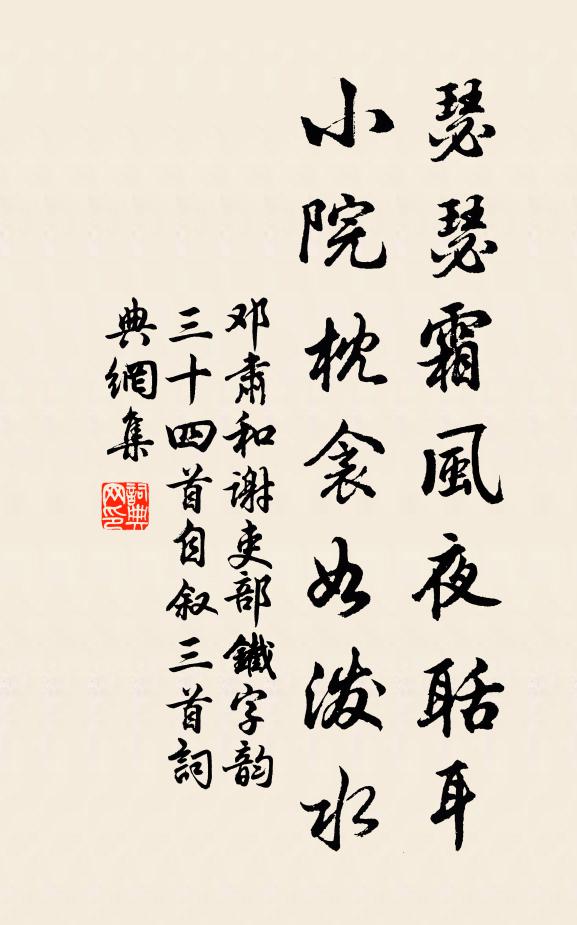 瑟瑟霜風夜聒耳
小院枕衾如潑水
邓肅和谢吏部鐵字韵
三十四首自叙三首詞
典網集
詞典网印